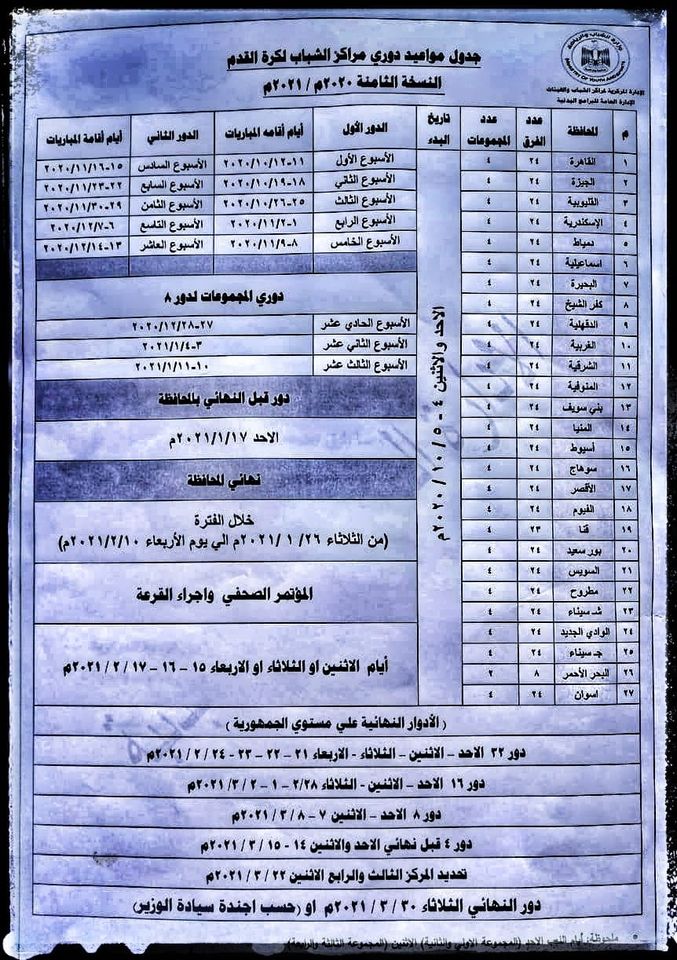 وزارة الشباب والرياضة
MINISTRY OF YOUTH AND SPORTS
الإدارة المركزية لمراكز الشباب والهيئات
الإدارة العامة للبرامج البدنية
جدول مواعيد دوري مراكز الشباب لكرة القدم
النسخة الثامنة ٢٠٢٠م / ٢٠٢١م
م المحافظة عدد الفرق عدد المجموعات تاريخ البدء
١ القاهرة ٢٤ ٤
٢ الجيزة ٢٤ ٤
٣ القليوبية ٢٤ ٤
٤ الإسكندرية ٢٤ ٤
٥ دمياط ٢٤ ٤
٦ اسماعيلية ٢٤ ٤
٧ البحيرة ٢٤ ٤
٨ كفر الشيخ ٢٤ ٤
٩ الدقهلية ٢٤ ٤
١٠ الغربية ٢٤ ٤
١١ الشرقية ٢٤ ٤
١٢ المنوفية ٢٤ ٤
١٣ بني سويف ٢٤ ٤
١٤ المنيا ٢٤ ٤
١٥ أسيوط ٢٤ ٤
١٦ سوهاج ٢٤ ٤
١٧ الأقصر ٢٤ ٤
١٨ الفيوم ٢٤ ٤
١٩ قنا ٢٣ ٤
٢٠ بور سعيد ٢٤ ٤
٢١ السويس ٢٤ ٤
٢٢ مطروح ٢٤ ٤
٢٣ شـ سيناء ٢٤ ٤
٢٤ الوادي الجديد ٢٤ ٤
٢٥ جـ سيناء ٢٤ ٤
٢٦ البحر الأحمر ٨ ٢
٢٧ اسوان ٢٤ ٤
الاحد والاثنين ٤ - ٥ / ١٠ / ٢٠٢٠م
الدور الأول أيام أقامه المباريات الدور الثاني أيام أقامة المباريات
الأسبوع الأول ١١-٢٠٢٠/١٠/١٢ الأسبوع السادس ١٥-٢٠٢٠/١١/١٦
الأسبوع الثاني ١٨-٢٠٢٠/١٠/١٩ الأسبوع السابع ٢٢-٢٠٢٠/١١/٢٣
الأسبوع الثالث ٢٥-٢٠٢٠/١٠/٢٦ الأسبوع الثامن ٢٩-٢٠٢٠/١١/٣٠
الأسبوع الرابع ١-٢٠٢٠/١١/٢ الأسبوع التاسع ٦-٢٠٢٠/١٢/٧
الأسبوع الخامس ٨-٢٠٢٠/١١/٩ الأسبوع العاشر ١٣-٢٠٢٠/١٢/١٤
دوري المجموعات لدور ٨
الأسبوع الحادي عشر ٢٧-٢٠٢٠/١٢/٢٨
الأسبوع الثاني عشر ٣-٢٠٢١/١/٤
الأسبوع الثالث عشر ١٠-٢٠٢١/١/١١
دور قبل النهائي بالمحافظة
الاحد ٢٠٢١/١/١٧م
نهائي المحافظة
خلال الفترة
(من الثلاثاء ٢٦/ ١ /٢٠٢١م الي يوم الأربعاء ٢٠٢١/٢/١٠م)
المؤتمر الصحفي واجراء القرعة
أيام الاثنين او الثلاثاء او الاربعاء ١٥ - ١٦ - ١٧ / ٢ / ٢٠٢١م
( الأدوار النهائية علي مستوي الجمهورية )
دور ٣٢ الاحد – الاثنين – الثلاثاء - الاربعاء ٢١ – ٢٢ – ٢٣ - ٢٤ / ٢ / ٢٠٢١م
دور ١٦ الاحد – الاثنين - الثلاثاء ٢/٢٨ - ١ - ٢ / ٣ / ٢٠٢١م
دور ٨ الاحد – الاثنين ٧ – ٨ / ٣ / ٢٠٢١م
دور ٤ قبل نهائي الاحد والاثنين ١٤ - ١٥ / ٣ / ٢٠٢١م
تحديد المركز الثالث والرابع الاثنين ٢٢ / ٣ / ٢٠٢١م
دور النهائي الثلاثاء ٣٠ / ٣ / ٢٠٢١م او (حسب اجندة سيادة الوزير)
ملحوظة: أيام اللعب الاحد (المجموعة الاولي والثانية) الاثنين (المجموعة الثالثة والرابعة).